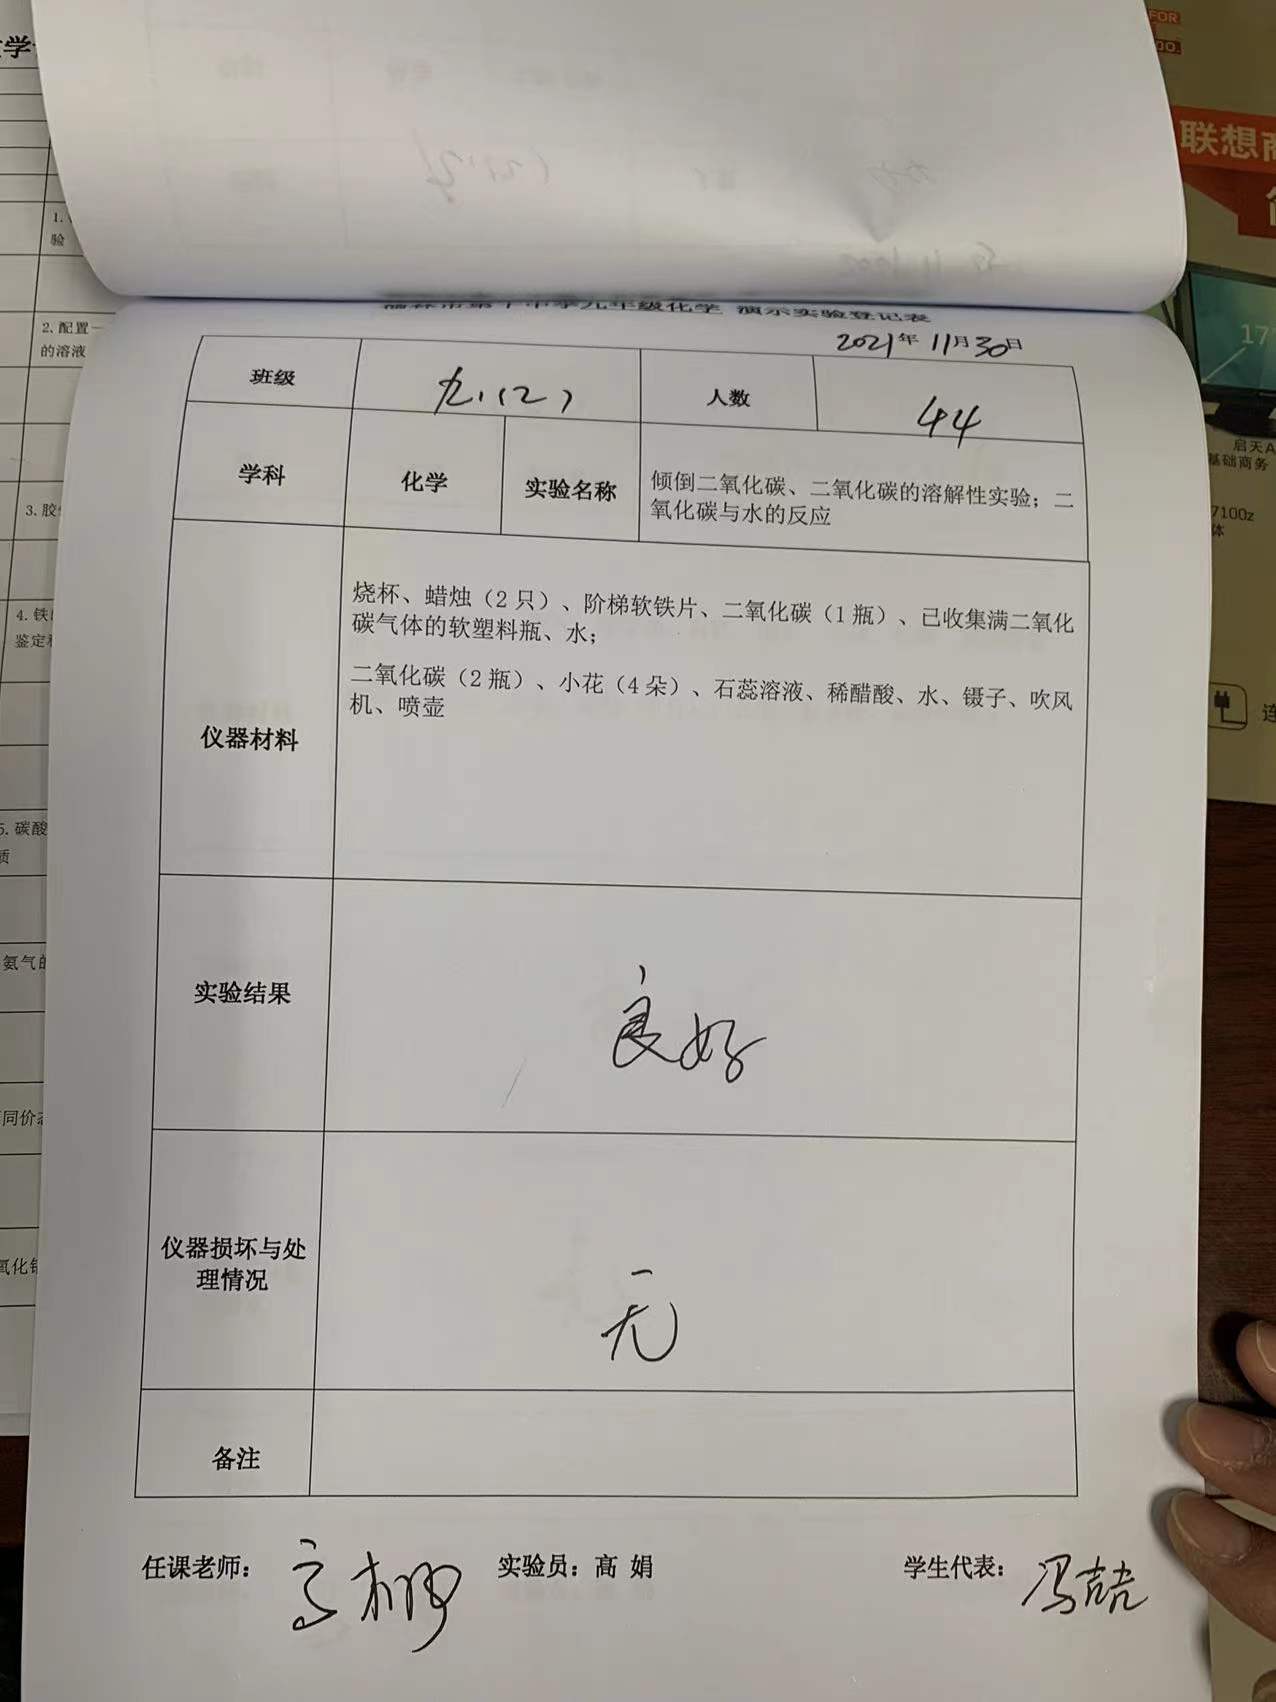 九年级化学 演示实验登记表
2021年11月30日
班级 九.(2) 人数 44
学科 化学 实验名称 倾倒二氧化碳、二氧化碳的溶解性实验；二
氧化碳与水的反应
仪器材料
烧杯、蜡烛（2只）、阶梯软铁片、二氧化碳（1瓶）、已收集满二氧化
碳气体的软塑料瓶、水；
二氧化碳（2瓶）、小花（4朵）、石蕊溶液、稀醋酸、水、镊子、吹风
机、喷壶
实验结果 良好
仪器损坏与处
理情况
无
备注
任课老师： 高 实验员：高 娟 学生代表：冯喆
学
1.
验
2.配置一
的溶液
3.胶
4.铁
鉴定
5.碳酸
质
氨气的
同价态
氧化
FOR
联想商
17
启天A
基础商务
7100z
体
连